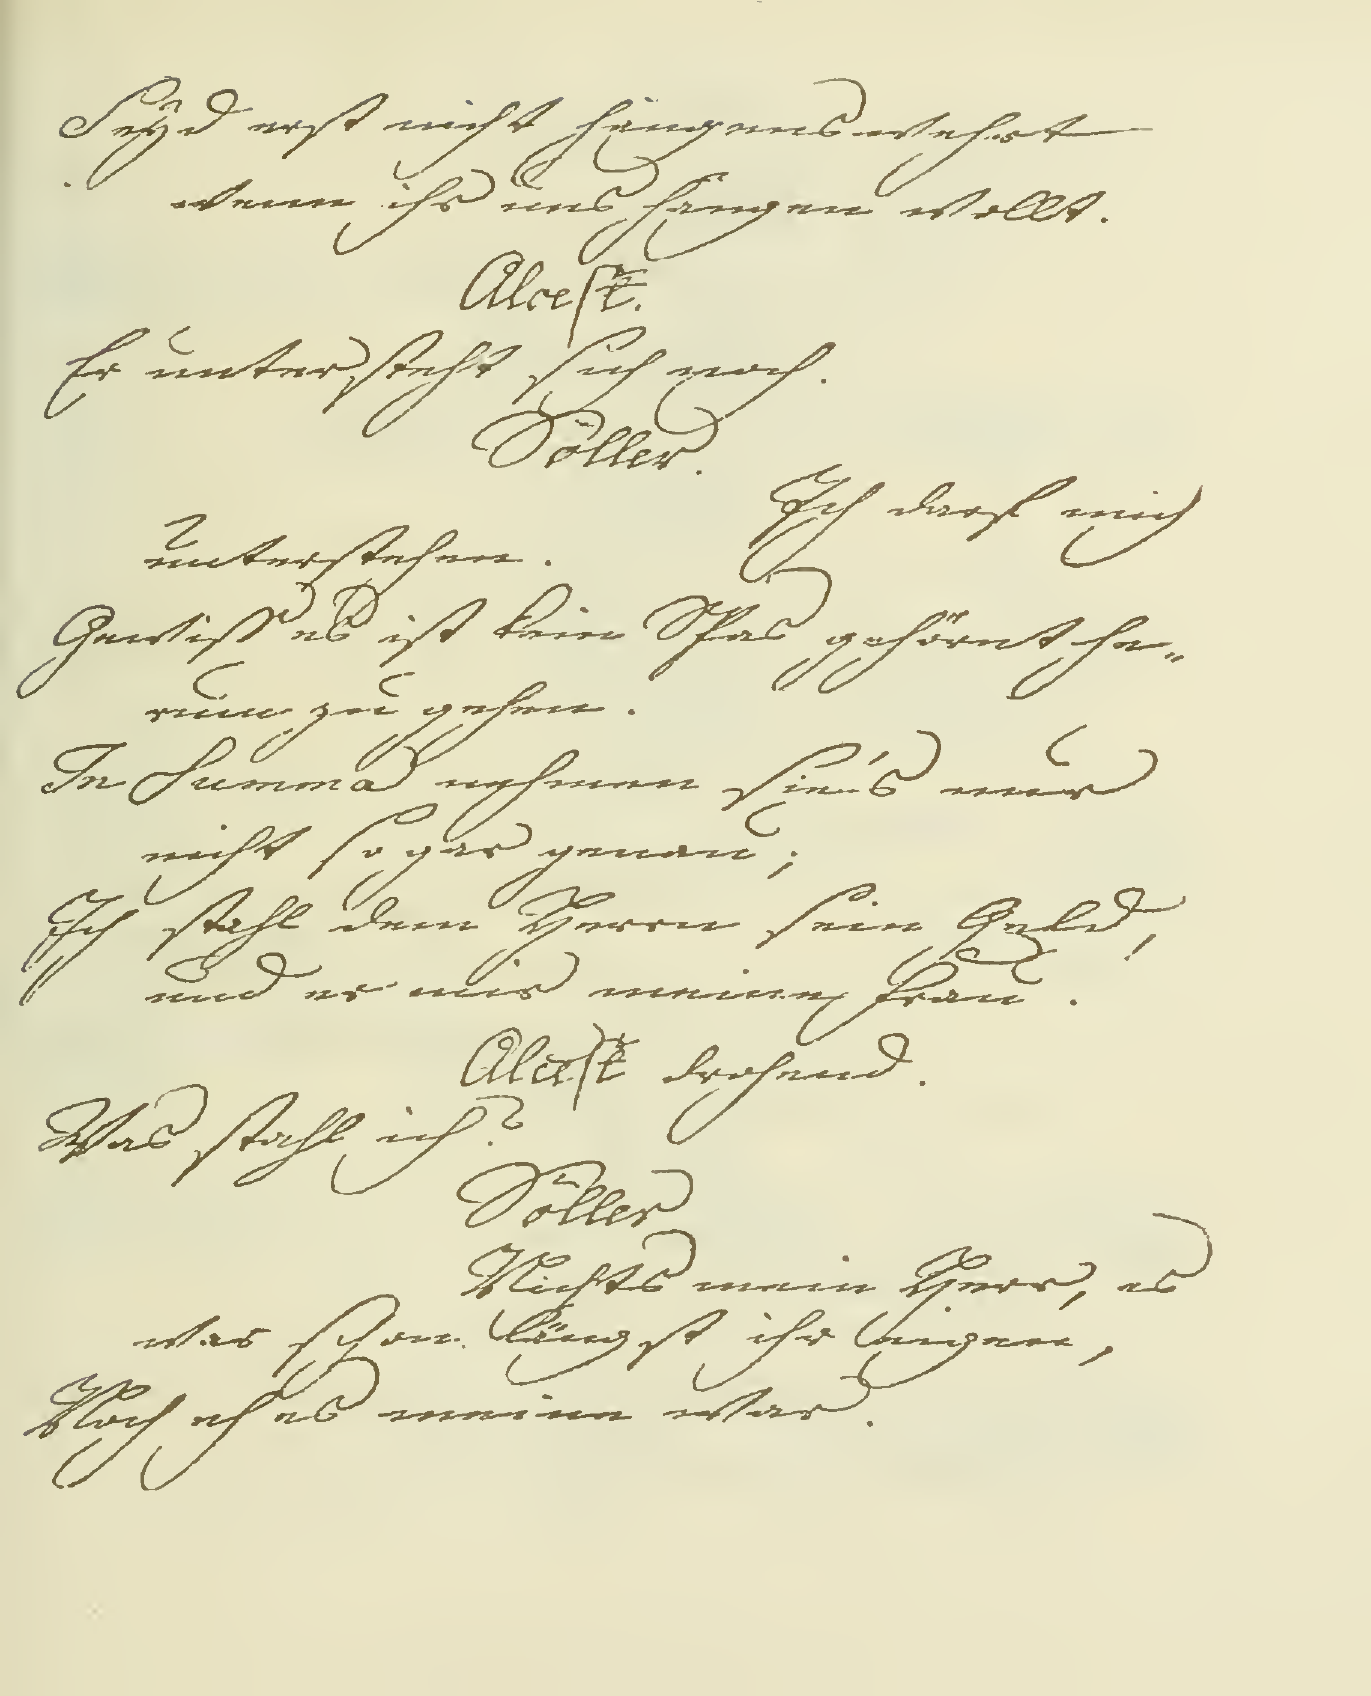 Seyd erst nicht hängenswehrt
wenn ihr uns hängen wollt.
Alcest.
Er untersteht sich noch.
Söller.
Ich darf mich
unterstehen.
Gewiss es ist kein Spas gehörnt he„
rum zu gehen.
In Summa nehmen sie's nur
nicht so gar genau;
Ich stahl dem Herrn sein Geld,
und er mir meine Frau.
Alcest drohend.
Was stahl ich?
Söller
Nichts mein Herr, es
war schon längst ihr eigen,
Noch eh es meine war.